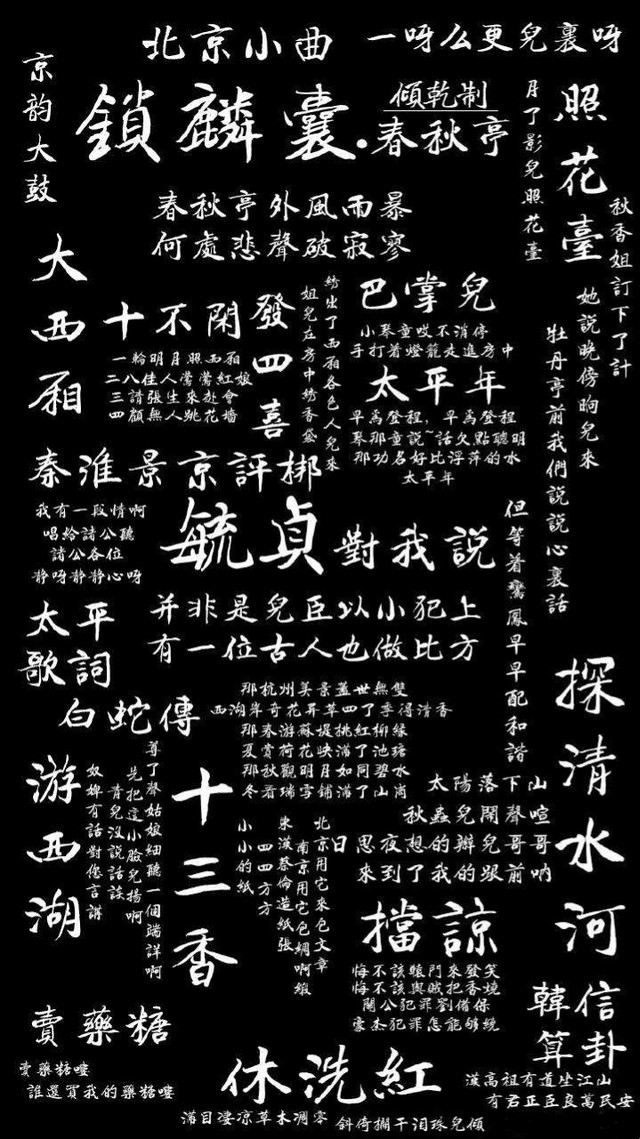 北京小曲
一呀么更兒裏呀
京韵大鼓
鎖麟囊·春秋亭
傾乾制
月了影兒照花臺
照花臺
秋香姐訂下了計
她說晚傍晌兒來
牡丹亭前我們說說心裏話
但等着鸞鳳早早配和諧
春秋亭外風雨暴
何處悲聲破寂寥
大西厢
十不閑
一輪明月照西厢
二八佳人鶯鶯紅娘
三請張生來赴會
四顧無人跳花墙
發四喜
姐兒在房中綉香袋
綉出了西厢各色人兒來
巴掌兒
小琴童哎不消停
手打着燈籠走進房中
太平年
早爲登程，早爲登程
琴那童説~話欠點聰明
那功名好比浮萍的水
太平年
秦淮景京評梆
我有一段情啊
唱給諸公聽
諸公各位
静呀静静心呀
毓貞對我説
并非是兒臣以小犯上
有一位古人也做比方
太平歌詞
白蛇傳
那杭州美景蓋世無雙
西湖岸奇花异草四了季得清香
那春游蘇堤桃紅柳緑
夏賞荷花映滿了池塘
那秋觀明月如同碧水
冬看瑞雪鋪滿了山崗
游西湖
尊了聲姑娘細聽一個端詳啊
先把這小臉兒揚啊
青兒没説話談
奴婢有話對您言講
十三香
小小的紙
四四方方
東漢蔡倫造紙張
南京用它包綢啊緞
北京用它來包文章
探清水河
太陽落下山
秋蟲兒鬧聲喧
日思夜想的辦兒哥哥
來到了我的跟前呐
擋諒
悔不該轅門來發笑
悔不該與賊把香燒
關公犯罪劉備保
豪杰犯罪怎能够饒
賣藥糖
賣藥糖嘍
誰還買我的藥糖嘍
休洗紅
滿目凄凉草木凋零
斜倚闌干泪珠兒傾
韓信算卦
漢高祖有道坐江山
有君正臣良萬民安